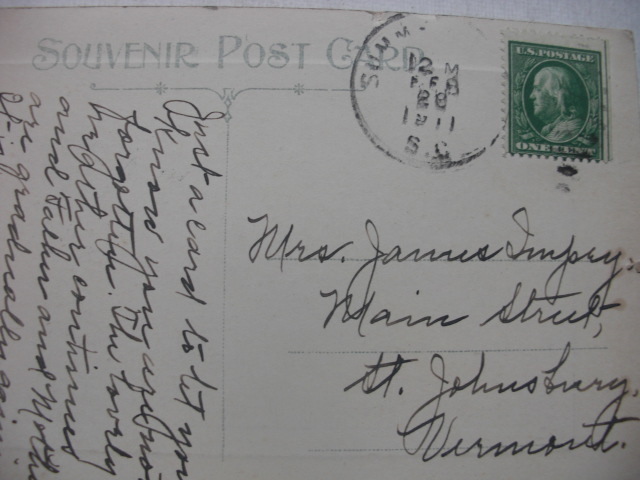 SOUVENIR POST CARD
SUMM
12 M
FEB
28
1911
S.C.
U.S. POSTAGE
ONE CENT
Mrs. James Impey.
Main Street,
St. Johnsbury,
Vermont.
Just a card to let you
Know you are not
forgotten. The lovely
weather continues
and Father and Mother
are gradually